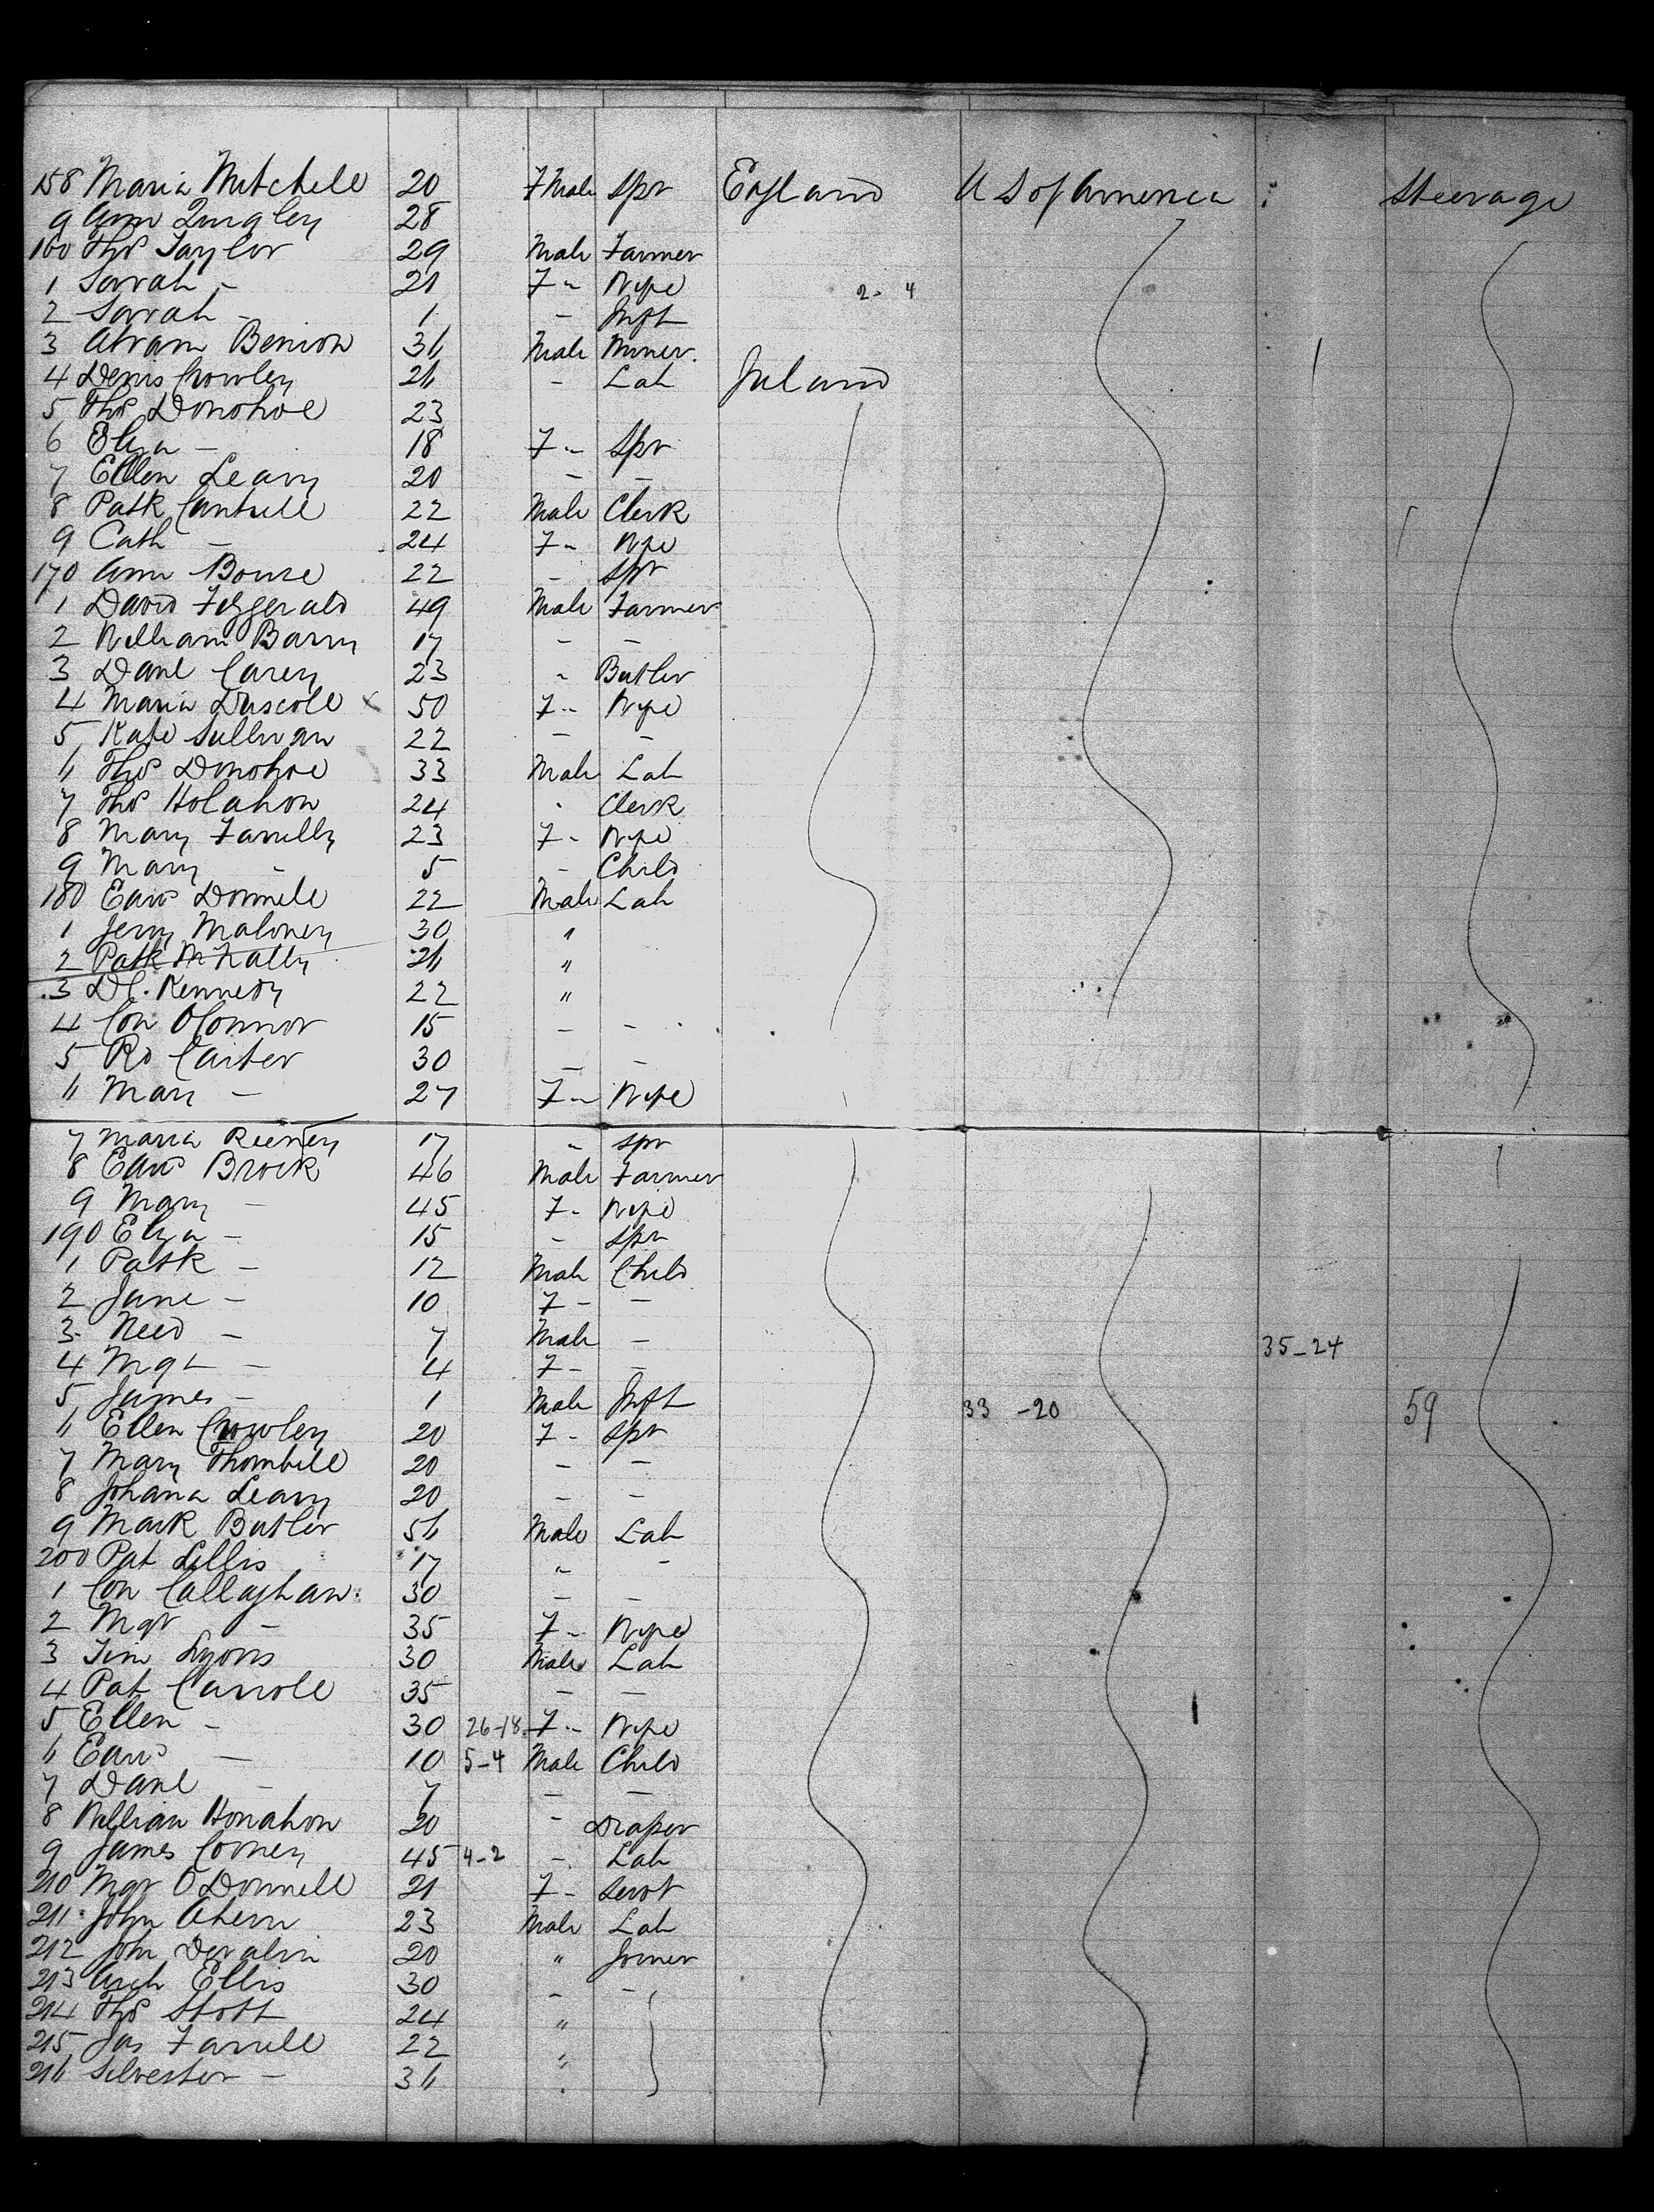 158 Maria Mitchell 20 F Male Spr England U S of America : Steerage
9 Ann Quigley 28
160 Thos Taylor 29 Male Farmer
1 Sarah - 21 F " Wife 2 - 4
2 Sarah - 1 - Inft
3 Abram Benion 36 Male Miner.
4 Denis Crowley 26 - Lab Ireland
5 Thos Donohoe 23
6 Eliza - 18 F " Spr
7 Ellen Leary 20 - -
8 Patk Cantrell 22 Male Clerk
9 Cath - 24 F " Wife
170 Ann Bourse 22 - Spr
1 David Fitzgerald 49 Male Farmer
2 William Barry 17 - -
3 Danl Carey 23 " Butler
4 Maria Driscoll x 50 F " Wife
5 Kate Sullivan 22 - -
6 Thos Donohoe 33 Male Lab
7 Thos Holahon 24 " Clerk
8 Mary Farrelly 23 F " Wife
9 Mary - 5 - Child
180 Edwd Donnell 22 Male Lab
1 Jerry Maloney 30 "
2 Patk McNally 26 "
3 Dl. Kennedy 22 "
4 Con OConnor 15 - -
5 Rd Carter 30 - -
6 Mary - 27 F " Wife
7 Maria Reeney 17 " Spr
8 Edwd Brock 46 Male Farmer
9 Mary - 45 F " Wife
190 Eliza - 15 - Spr
1 Patk - 12 Male Child
2 Jane - 10 F - -
3 Need - 7 Male - 35-24
4 Mgt - 4 F - -
5 James - 1 Male Inft 33 -20 59
6 Ellen Crowley 20 F - Spr
7 Mary Thornhill 20 - -
8 Johana Leary 20 - -
9 Mark Butler 56 Male Lab
200 Pat Lillis 17 " -
1 Con Callaghan 30 - -
2 Mgt - 35 F " Wife
3 Tim Lyons 30 Male Lab
4 Pat Carroll 35 - -
5 Ellen - 30 26-18 F " Wife
6 Edwd - 10 5-4 Male Child
7 Danl - 7 - -
8 William Honahon 20 - Draper
9 James Corney 45 4-2 - Lab
210 Mgt ODonnell 21 F - Servt
211 John Ahern 23 Male Lab
212 John Devalin 20 " Joiner
213 Arch Ellis 30 - -
214 Thos Stott 24 "
215 Jas Farrell 22 "
216 Silvester - 36 "